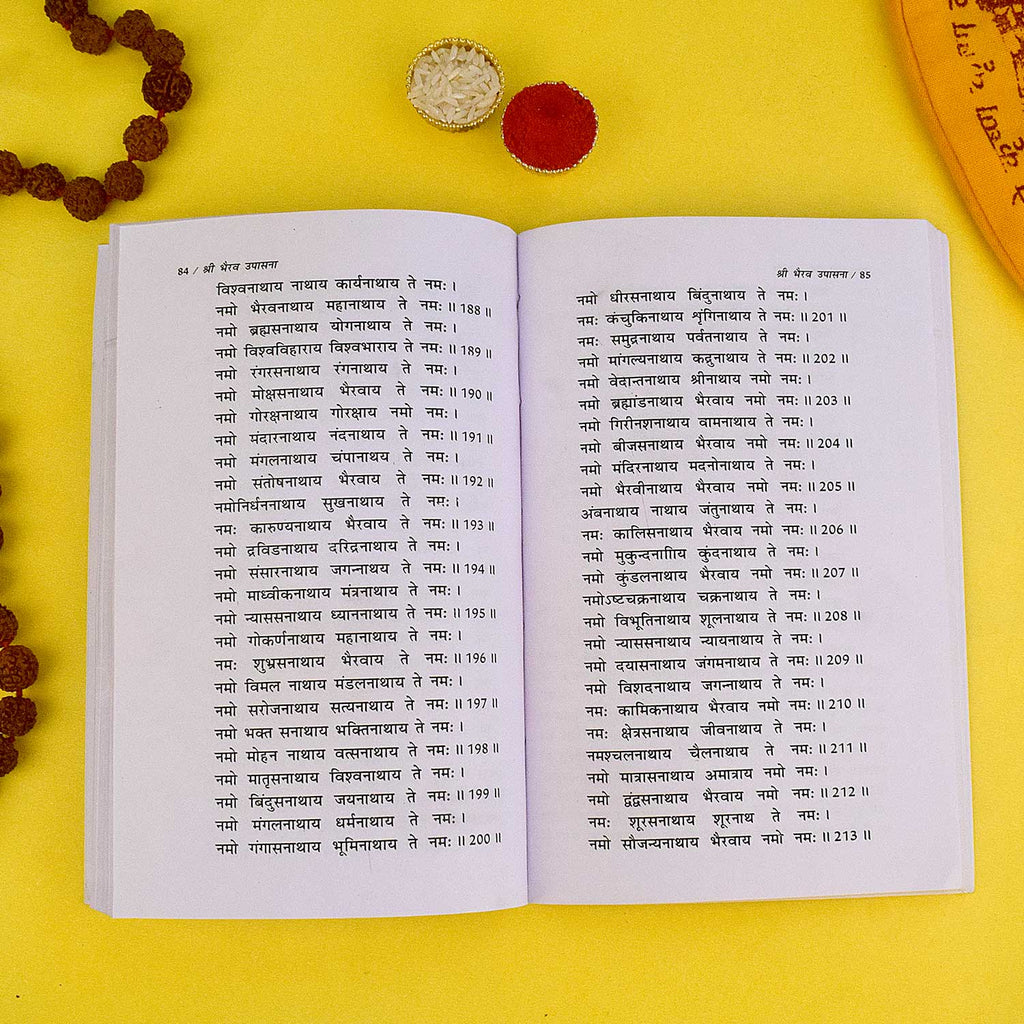 84 / श्री भैरव उपासना
विश्वनाथाय नाथाय कार्यनाथाय ते नमः ।
नमो भैरवनाथाय महानाथाय ते नमः ॥ 188 ॥
नमो ब्रह्मसनाथाय योगनाथाय ते नमः ।
नमो विश्वविहाराय विश्वभाराय ते नमः ॥ 189 ॥
नमो रंगरसनाथाय रंगनाथाय ते नमः ।
नमो मोक्षसनाथाय भैरवाय ते नमः ॥ 190 ॥
नमो गोरक्षनाथाय गोरक्षाय नमो नमः ।
नमो मंदारनाथाय नंदनाथाय ते नमः ॥ 191 ॥
नमो मंगलनाथाय चंपानाथाय ते नमः ।
नमो संतोषनाथाय भैरवाय ते नमः ॥ 192 ॥
नमोनिर्धननाथाय सुखनाथाय ते नमः ।
नमः कारुण्यनाथाय भैरवाय ते नमः ॥ 193 ॥
नमो द्रविडनाथाय दरिद्रनाथाय ते नमः ।
नमो संसारनाथाय जगन्नाथय ते नमः ॥ 194 ॥
नमो माध्वीकनाथाय मंत्रनाथाय ते नमः ।
नमो न्याससनाथाय ध्याननाथाय ते नमः ॥ 195 ॥
नमो गोकर्णनाथाय महानाथाय ते नमः ।
नमः शुभ्रसनाथाय भैरवाय ते नमः ॥ 196 ॥
नमो विमल नाथाय मंडलनाथाय ते नमः ।
नमो सरोजनाथाय सत्यनाथाय ते नमः ॥ 197 ॥
नमो भक्त सनाथाय भक्तिनाथाय ते नमः ।
नमो मोहन नाथाय वत्सनाथाय ते नमः ॥ 198 ॥
नमो मातृसनाथाय विश्वनाथाय ते नमः ।
नमो बिंदुसनाथाय जयनाथाय ते नमः ॥ 199 ॥
नमो मंगलनाथाय धर्मनाथाय ते नमः ।
नमो गंगासनाथाय भूमिनाथाय ते नमः ॥ 200 ॥
श्री भैरव उपासना / 85
नमो धीरसनाथाय बिंदुनाथाय ते नमः ।
नमः कंचुकिनाथाय शृंगिनाथाय ते नमः ॥ 201 ॥
नमः समुद्रनाथाय पर्वतनाथाय ते नमः ।
नमो मांगल्यनाथाय कद्रुनाथाय ते नमः ॥ 202 ॥
नमो वेदान्तनाथाय श्रीनाथाय नमो नमः ।
नमो ब्रह्मांडनाथाय भैरवाय नमो नमः ॥ 203 ॥
नमो गिरीनशनाथाय वामनाथाय ते नमः ।
नमो बीजसनाथाय भैरवाय नमो नमः ॥ 204 ॥
नमो मंदिरनाथाय मदनोनाथाय ते नमः ।
नमो भैरवीनाथाय भैरवाय नमो नमः ॥ 205 ॥
अंबनाथाय नाथाय जंतुनाथाय ते नमः ।
नमः कालिसनाथाय भैरवाय नमो नमः ॥ 206 ॥
नमो मुकुन्दनााियाय कुंदनाथाय ते नमः ।
नमो कुंडलनाथाय भैरवाय नमो नमः ॥ 207 ॥
नमोऽष्टचक्रनाथाय चक्रनाथाय ते नमः ।
नमो विभूतिनाथाय शूलनाथाय ते नमः ॥ 208 ॥
नमो न्याससनाथाय न्यायनाथाय ते नमः ।
नमो दयासनाथाय जंगमनाथाय ते नमः ॥ 209 ॥
नमो विशदनाथाय जगन्नाथाय ते नमः ।
नमः कामिकनाथाय भैरवाय नमो नमः ॥ 210 ॥
नमः क्षेत्रसनाथाय जीवनाथाय ते नमः ।
नमश्चलनाथाय चैलनाथाय ते नमः ॥ 211 ॥
नमो मात्रासनाथाय अमात्राय नमो नमः ।
नमो द्वंद्वसनाथाय भैरवाय नमो नमः ॥ 212 ॥
नमः शूरसनाथाय शूरनाथ ते नमः ।
नमो सौजन्यनाथाय भैरवाय नमो नमः ॥ 213 ॥